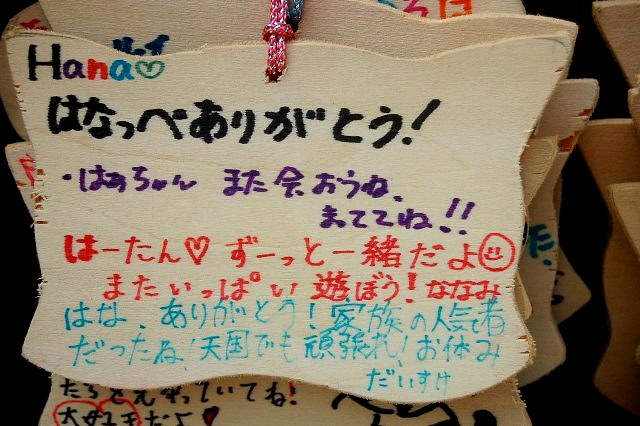 Hana♡
はなっぺありがとう!
・はぁちゃん また会おうね、
まっててね!!
はーたん♡ ずーっと一緒だよ
またいっぱい遊ぼう!ななみ
はな、ありがとう!家族の人気者
だったね!天国でも頑張れ!お休み
だいすけ